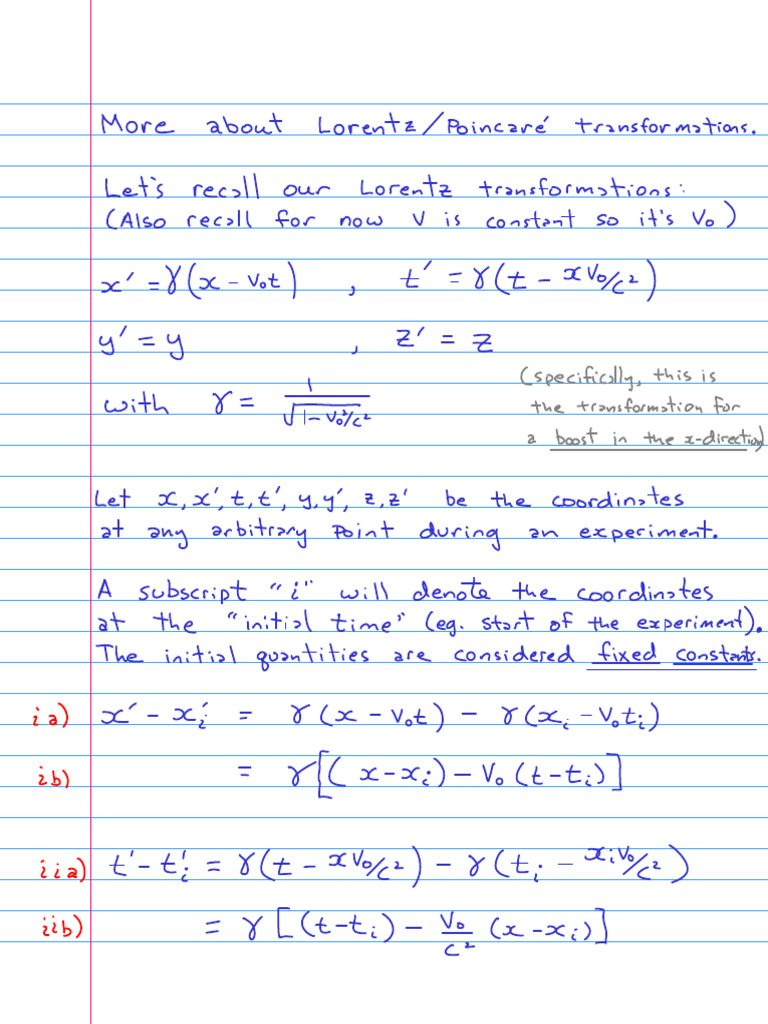 More about Lorentz/Poincaré transformations.
Let's recall our Lorentz transformations:
(Also recall for now v is constant so it's v₀)
x' = γ(x - v₀t) , t' = γ(t - xv₀/c²)
y' = y , z' = z
with γ = 1/√(1 - v₀²/c²)
(specifically, this is
the transformation for
a boost in the x-direction)
Let x, x', t, t', y, y', z, z' be the coordinates
at any arbitrary point during an experiment.
A subscript "i" will denote the coordinates
at the "initial time" (eg. start of the experiment).
The initial quantities are considered fixed constants.
ia) x' - xᵢ' = γ(x - v₀t) - γ(xᵢ - v₀tᵢ)
ib) = γ[(x - xᵢ) - v₀(t - tᵢ)]
iia) t' - t'ᵢ = γ(t - xv₀/c²) - γ(tᵢ - xᵢv₀/c²)
iib) = γ[(t - tᵢ) - v₀/c² (x - xᵢ)]